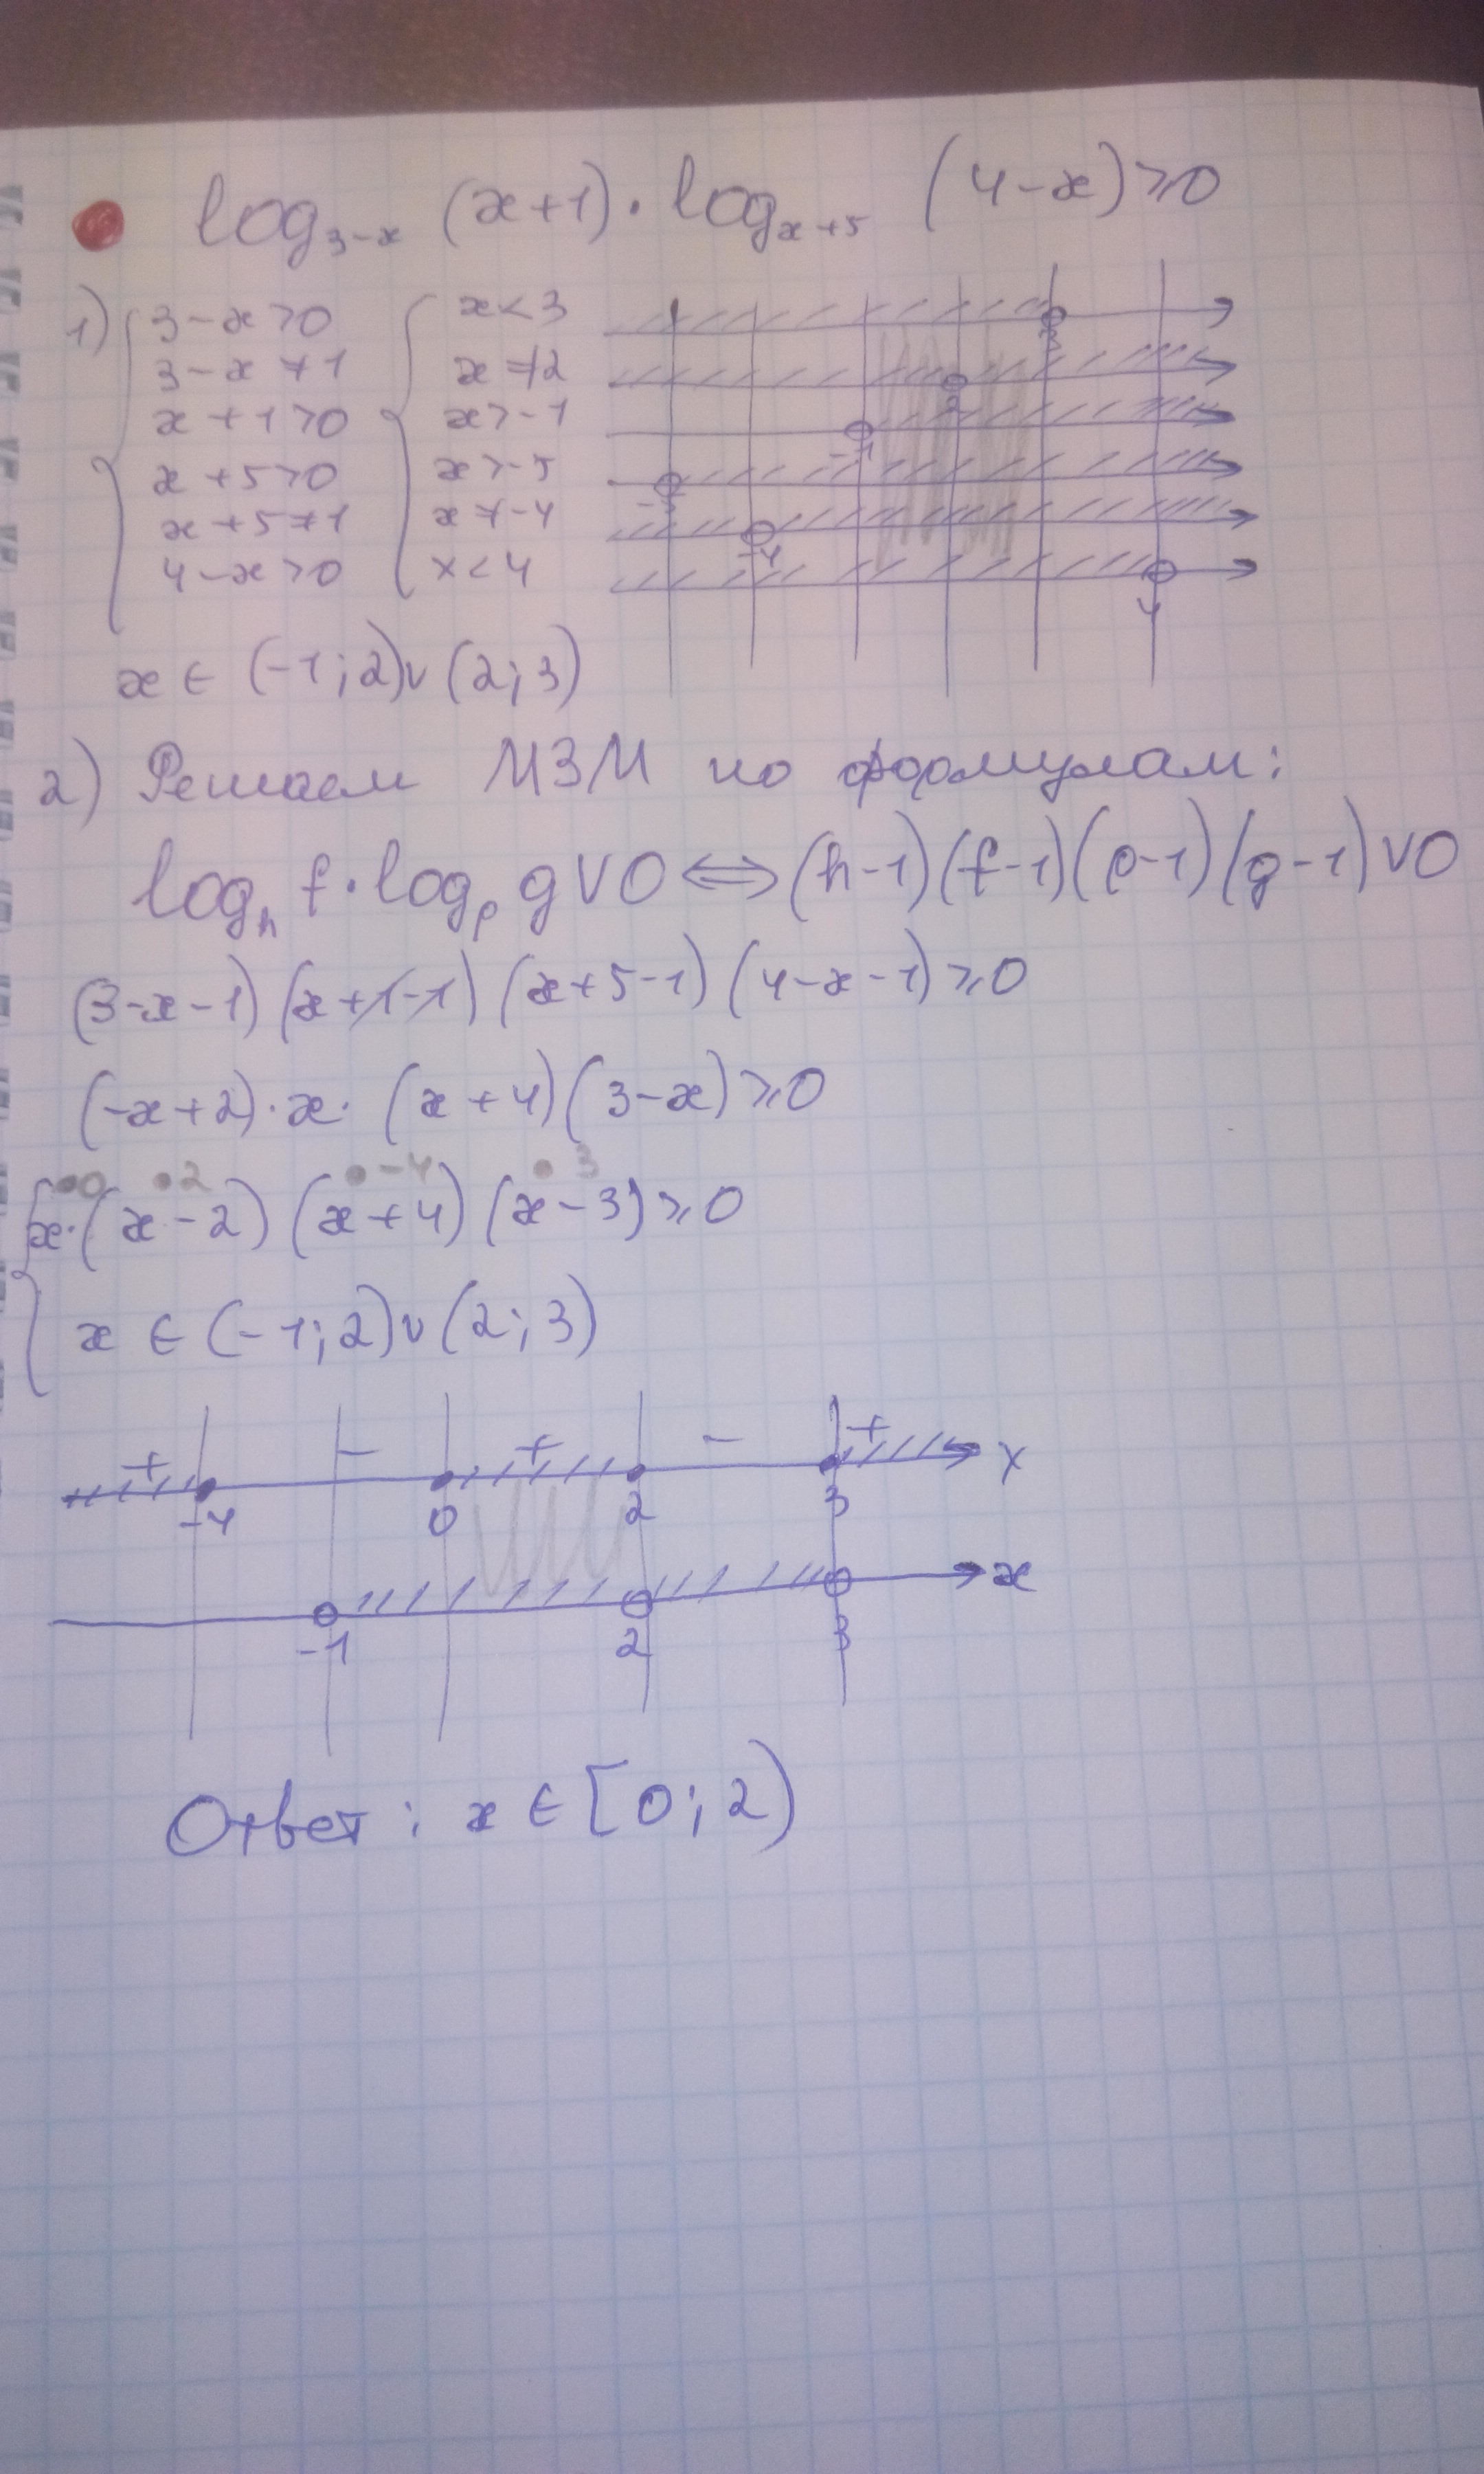 log₃₋ₓ (x+1) · logₓ₊₅ (4-x) ≥ 0
1) { 3-x>0 { x<3
3-x≠1 x≠2
x+1>0 x>-1
x+5>0 x>-5
x+5≠1 x≠-4
4-x>0 x<4
3
2
-1
-5
-4
4
x ∈ (-1; 2) ∪ (2; 3)
2) Решаем МЗМ по формулам:
logₕ f · logₚ g ∨ 0 ⟺ (h-1)(f-1)(p-1)(g-1) ∨ 0
(3-x-1)(x+1-1)(x+5-1)(4-x-1) ≥ 0
(-x+2) · x · (x+4)(3-x) ≥ 0
0 2 -4 3
{ x · (x-2)(x+4)(x-3) ≥ 0
x ∈ (-1; 2) ∪ (2; 3)
+ - + - + x
-4 0 2 3
x
-1 2 3
Ответ: x ∈ [0; 2)